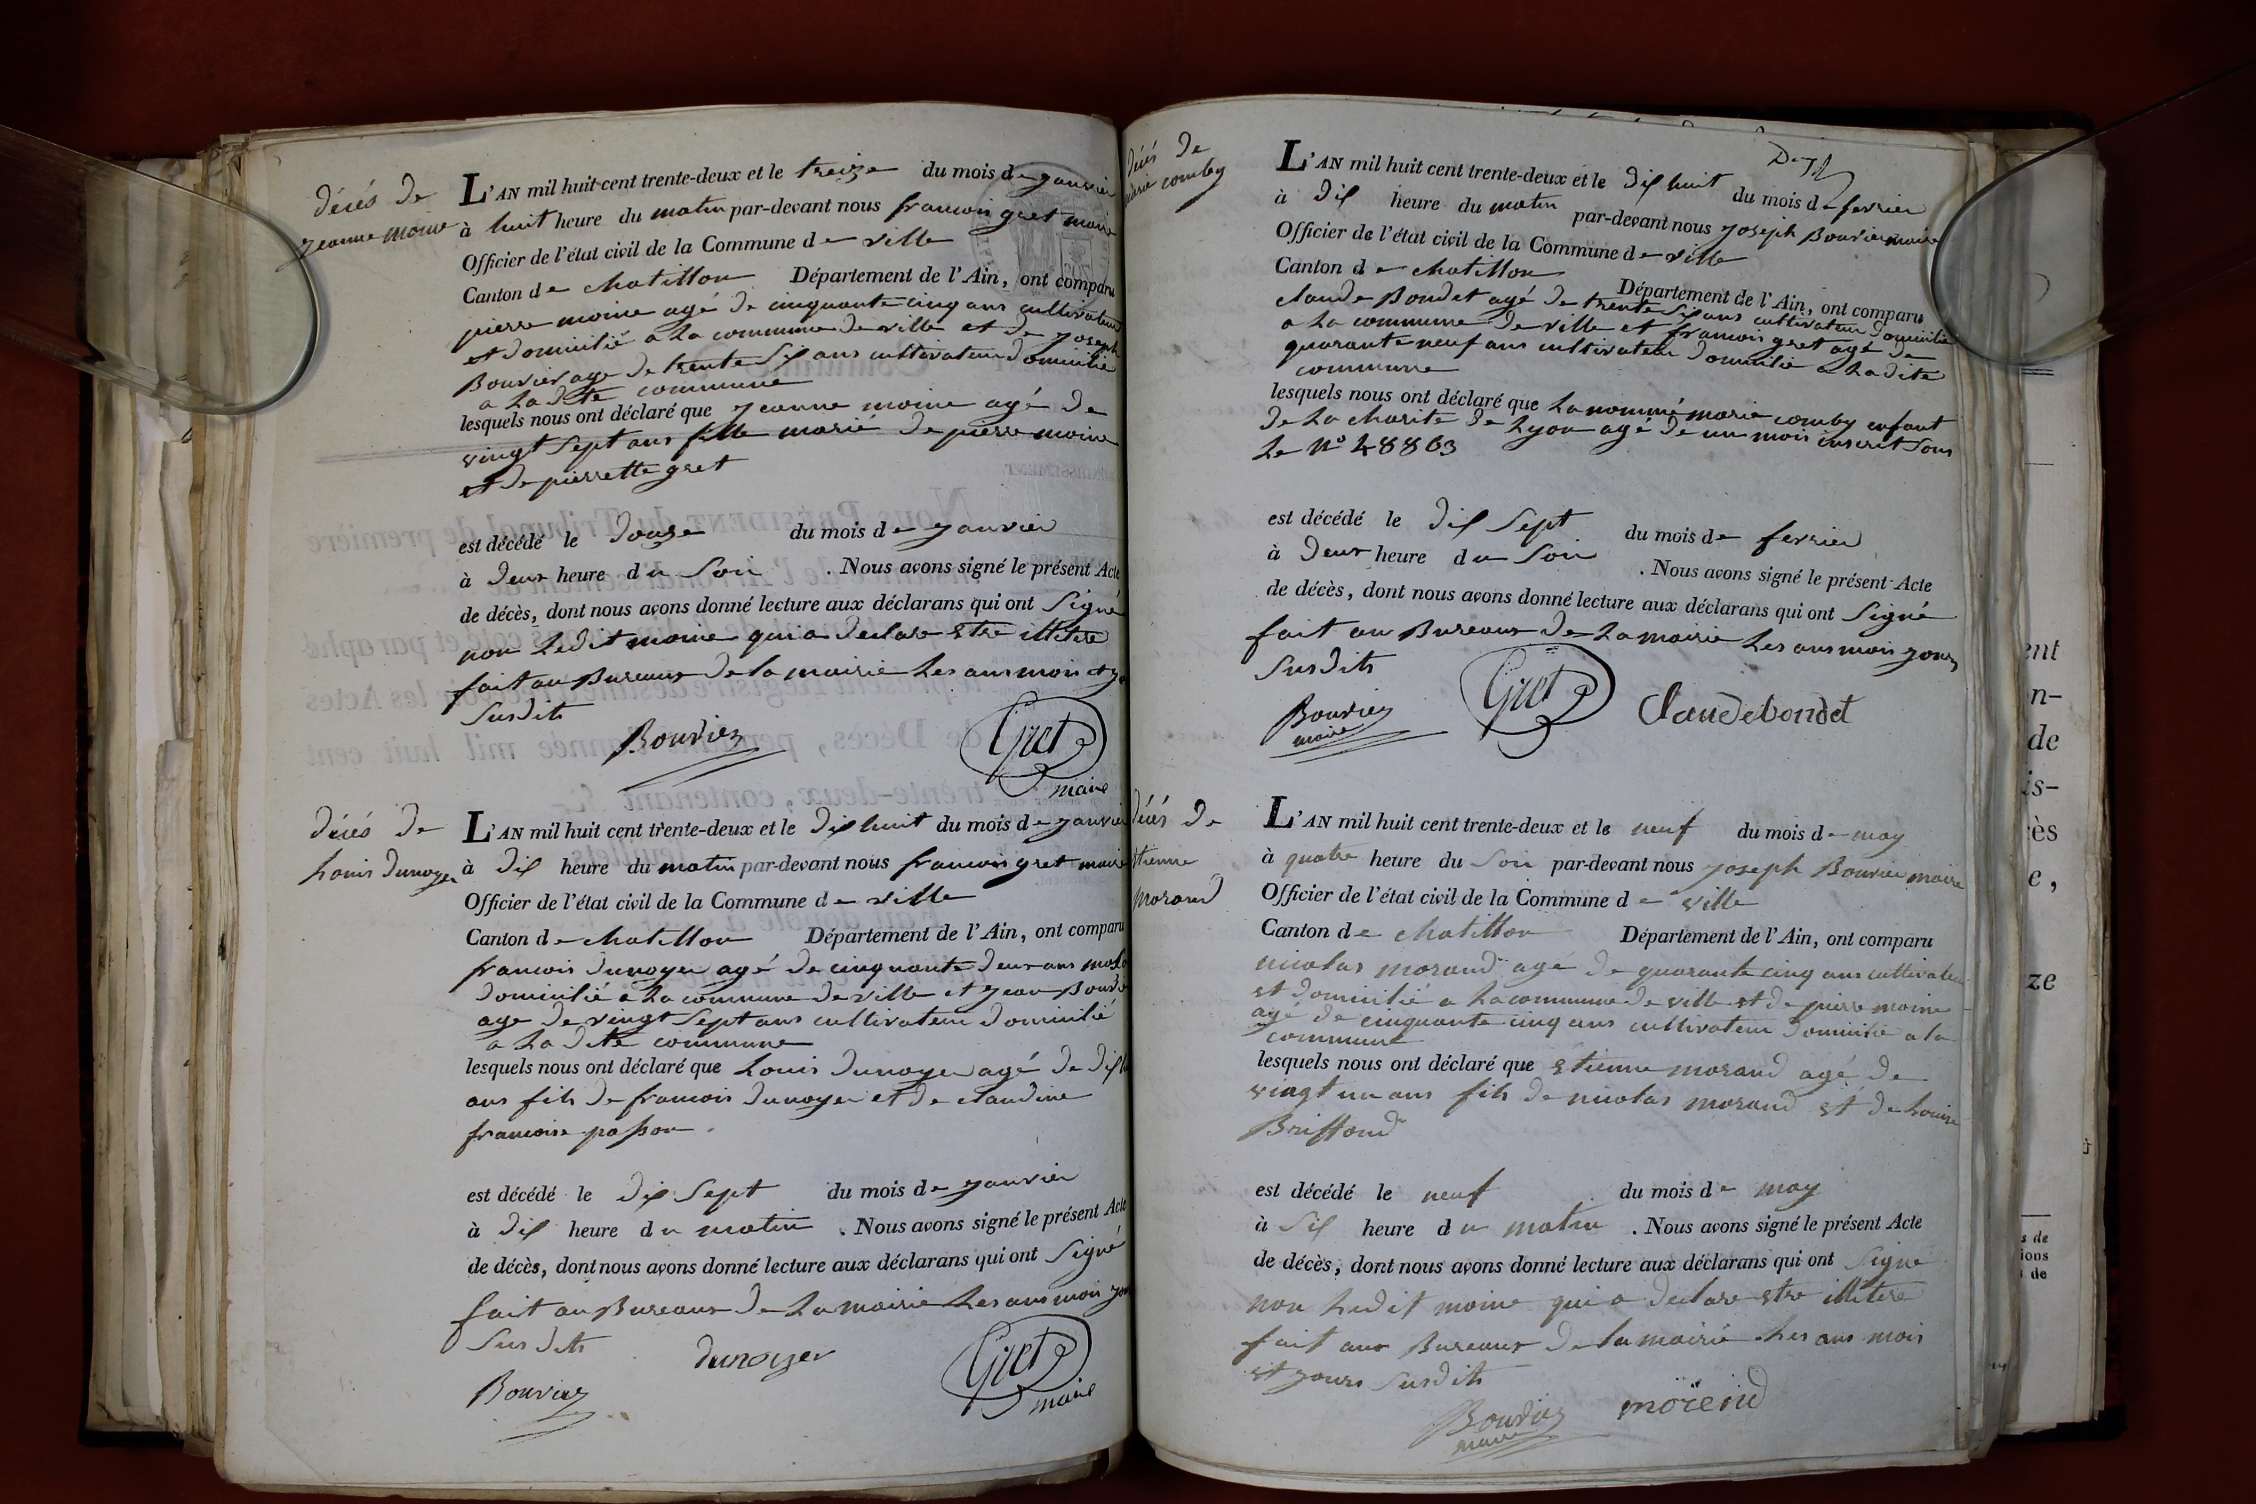 décès de
jeanne moine
L'AN mil huit cent trente-deux et le treize du mois de janvier
à huit heure du matin par-devant nous francois gret maire
Officier de l'état civil de la Commune de ville
Canton de chatillon Département de l'Ain, ont comparu
pierre moine agé de cinquante cinq ans cultivateur
et domicilié a la commune de ville et de joseph
Bouvier age de trente six ans cultivateur domicilié
a la dite commune
lesquels nous ont déclaré que jeanne moine agé de
vingt sept ans fille marié de pierre moine
et de pierrette gret
est décédé le douze du mois de janvier
à deux heure du Soir . Nous avons signé le présent Acte
de décès, dont nous avons donné lecture aux déclarans qui ont Signé
non ledit moine qui a declare etre illitere
fait au Bureaux de la mairie les ans mois et
Susdits
Bouvier
Gret
maire
décés de
Louis dunoyer
L'AN mil huit cent trente-deux et le dix huit du mois de janvier
à dix heure du matin par-devant nous francois gret maire
Officier de l'état civil de la Commune de ville
Canton de chatillon Département de l'Ain, ont comparu
francois dunoyer agé de cinquante deux ans
domicilié a la commune de ville et jean
age de vingt Sept ans cultivateur domicilié
a la dite commune
lesquels nous ont déclaré que Louis dunoyer agé de
ans fils de francois dunoyer et de claudine
francoise passon
est décédé le dix Sept du mois de janvier
à dix heure du matin . Nous avons signé le présent Acte
de décès, dont nous avons donné lecture aux déclarans qui ont Signé
fait au Bureaux de La mairie Les ans mois
Sus dits
dunoyer
Gret
maire
Bouvier
décés de
marie comby
L'AN mil huit cent trente-deux et le dix huit du mois de fevrier
à dix heure du matin par-devant nous joseph Bouvier maire
Officier de l'état civil de la Commune de ville
Canton de chatillon Département de l'Ain, ont comparu
claude Bondet agé de trente six ans cultivateur domicilié
a la commune de ville et francois gret agé de
quarante neuf ans cultivateur domicilié a la dite
commune
lesquels nous ont déclaré que la nommé marie comby enfant
de la charite de Lyon agé de un mois inscrit Sous
Le N° 48863
est décédé le dix Sept du mois de fevrier
à deux heure du Soir . Nous avons signé le présent Acte
de décès, dont nous avons donné lecture aux déclarans qui ont Signé
fait au Bureaux de La mairie Les ans mois jours
Susdits
Bouvier
maire
Gret
Claudebondet
décés de
étienne
morand
L'AN mil huit cent trente-deux et le neuf du mois de may
à quatre heure du Soir par-devant nous joseph Bouvier maire
Officier de l'état civil de la Commune de ville
Canton de chatillon Département de l'Ain, ont comparu
nicolas morand agé de quarante cinq ans cultivateur
et domicilié a la commune de ville et de pierre moine
agé de cinquante cinq ans cultivateur domicilié a la
commune
lesquels nous ont déclaré que étienne morand agé de
vingt un ans fils de nicolas morand et de Louise
Briffond
est décédé le neuf du mois de may
à Six heure du matin . Nous avons signé le présent Acte
de décès, dont nous avons donné lecture aux déclarans qui ont Signe
non Ledit moine qui a declare etre illitere
fait aux Bureaux de la mairie Les ans mois
et jours Susdits
Bouvier
maire